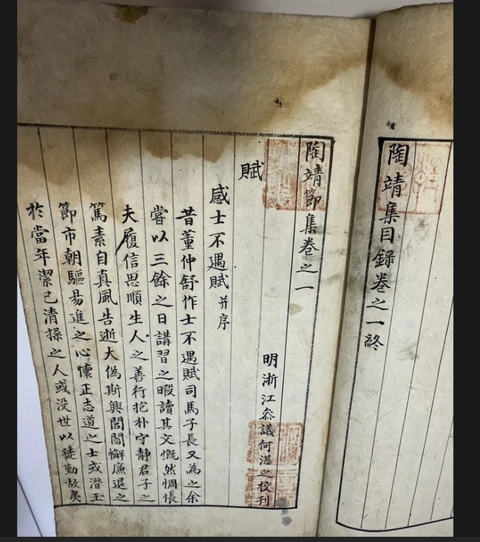 陶靖集目錄卷之一終
陶靖節集卷之一
明浙江叅議何湛之校刊
賦
感士不遇賦并序
昔董仲舒作士不遇賦司馬子長又為之余
嘗以三餘之日講習之暇讀其文慨然惆悵
夫履信思順生人之善行抱朴守靜君子之
篤素自真風告逝大偽斯興閭閻懈廉退之
節市朝驅易進之心懷正志道之士或潛玉
於當年潔己清操之人或沒世以徒勤故夷